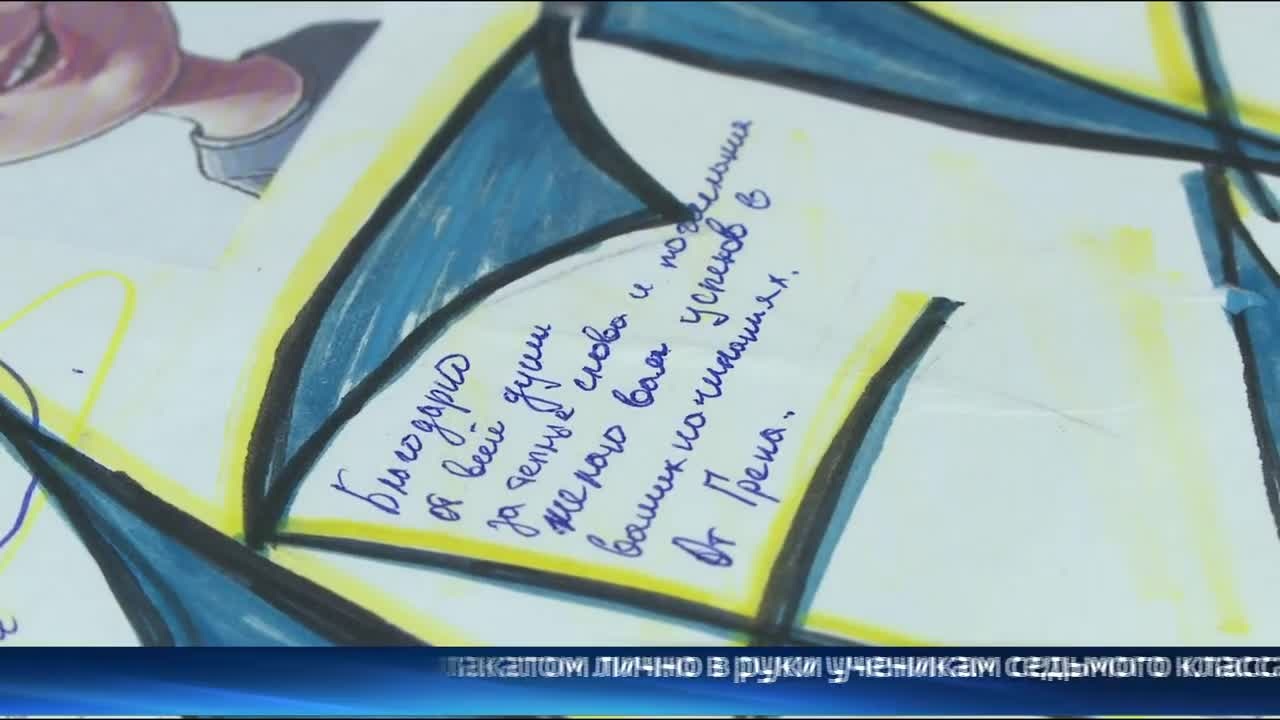 Благодарю
от всей души
за теплые слова и пожелания
желаю вам успехов в
ваших начинаниях.
От Грека.
лакатом лично в руки ученикам седьмого класса